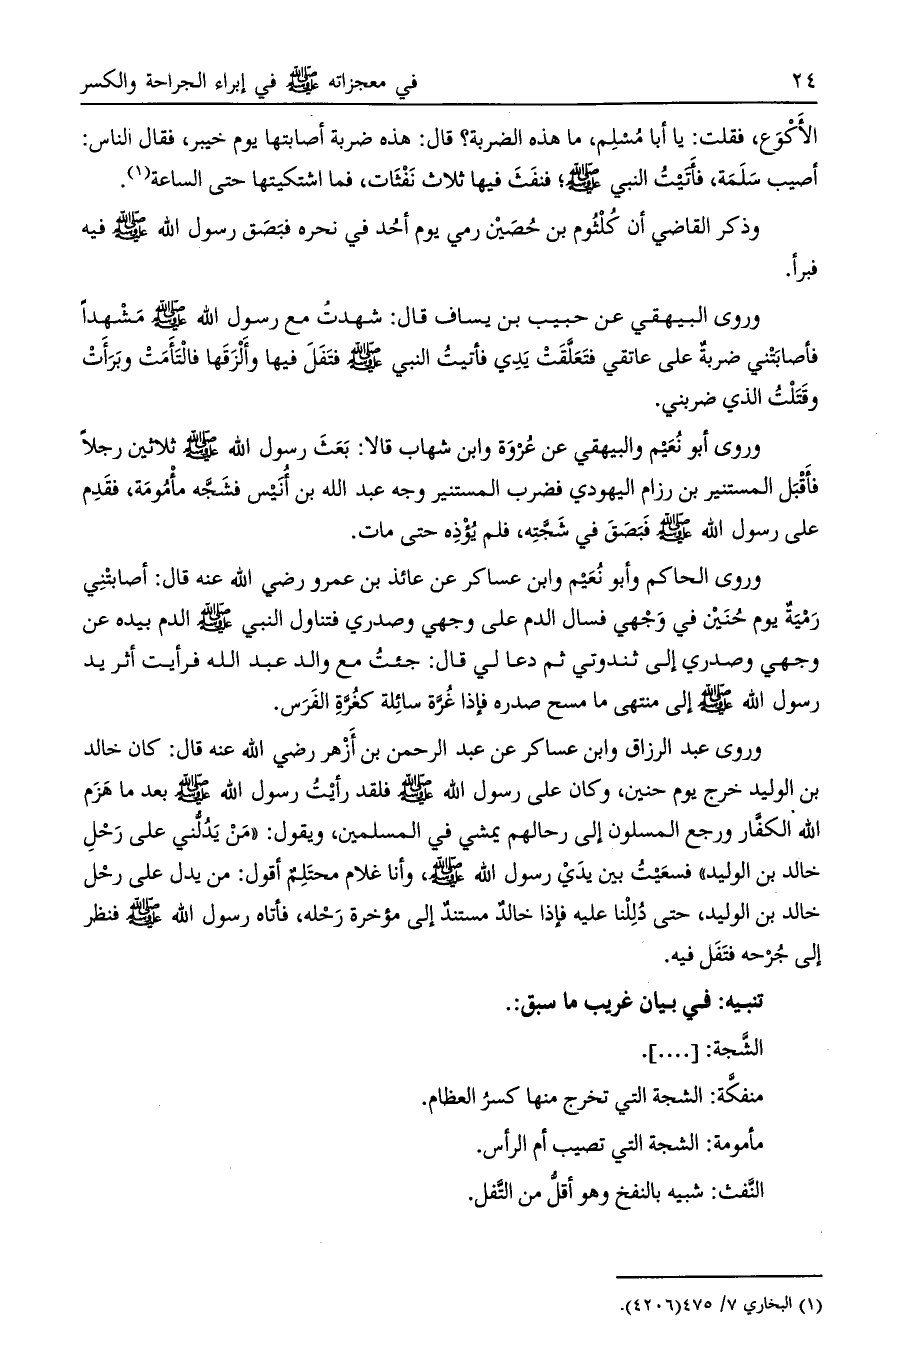 ٢٤ في معجزاته ﷺ في إبراء الجراحة والكسر
الأَكْوَع، فقلت: يا أبا مُسْلِم، ما هذه الضربة؟ قال: هذه ضربة أصابتها يوم خيبر، فقال الناس:
أصيب سَلَمَة، فأَتَيْتُ النبي ﷺ؛ فنفَثَ فيها ثلاث نَفْثَات، فما اشتكيتها حتى الساعة(١).
وذكر القاضي أن كُلْثُوم بن حُصَيْن رمي يوم أُحُد في نحره فبَصَق رسول الله ﷺ فيه
فبرأ.
وروى البيهقي عن حبيب بن يساف قال: شهدتُ مع رسول الله ﷺ مَشْهداً
فأصابَتْني ضربةٌ على عاتقي فتَعلَّقَتْ يَدِي فأتيتُ النبي ﷺ فتَفَلَ فيها وأَلْزَقَها فالْتَأَمَتْ وبَرَأَتْ
وقَتَلْتُ الذي ضربني.
وروى أبو نُعَيْم والبيهقي عن عُرْوَة وابن شهاب قالا: بَعَثَ رسول الله ﷺ ثلاثين رجلاً
فأَقْبَل المستنير بن رزام اليهودي فضرب المستنير وجه عبد الله بن أُنَيْس فشجَّه مأْمُومَة، فقَدِم
على رسول الله ﷺ فَبَصَقَ في شَجَّتِه، فلم يُؤْذِه حتى مات.
وروى الحاكم وأبو نُعَيْم وابن عساكر عن عائذ بن عمرو رضي الله عنه قال: أصابتْنِي
رَمْيَةٌ يوم حُنَيْن في وَجْهِي فسال الدم على وجهي وصدري فتناول النبي ﷺ الدم بيده عن
وجهي وصدري إلى ثندوتي ثم دعا لي قال: جئتُ مع والد عبد الله فرأيت أثر يد
رسول الله ﷺ إلى منتهى ما مسح صدره فإذا غُرَّة سائِلة كغُرَّةِ الفَرَس.
وروى عبد الرزاق وابن عساكر عن عبد الرحمن بن أَزْهر رضي الله عنه قال: كان خالد
بن الوليد خرج يوم حنين، وكان على رسول الله ﷺ فلقد رأيْتُ رسول الله ﷺ بعد ما هَزَم
الله الكفَّار ورجع المسلون إلى رحالهم يمشي في المسلمين، ويقول: «مَنْ يَدُلُّني على رَحْلِ
خالد بن الوليد» فسعَيْتُ بين يدَيْ رسول الله ﷺ، وأنا غلام محتَلِمٌ أقول: من يدل على رحْل
خالد بن الوليد، حتى دُلِلْنا عليه فإذا خالدٌ مستندٌ إلى مؤخرة رَحْله، فأتاه رسول الله ﷺ فنظر
إلى جُرْحه فتَفَل فيه.
تنبيه: في بيان غريب ما سبق:.
الشَّجة: [....].
منفكَّة: الشجة التي تخرج منها كسرُ العظام.
مأمومة: الشجة التي تصيب أم الرأس.
النَّفث: شبيه بالنفخ وهو أقلُّ من التَّفل.
(١) البخاري ٧/ ٤٧٥(٤٢٠٦).